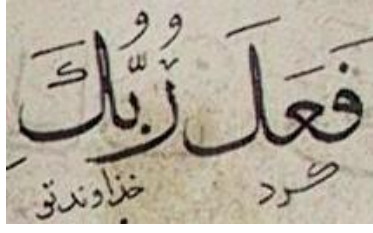 فَعَلَ رَبُّكَ
کرد خداوند تو